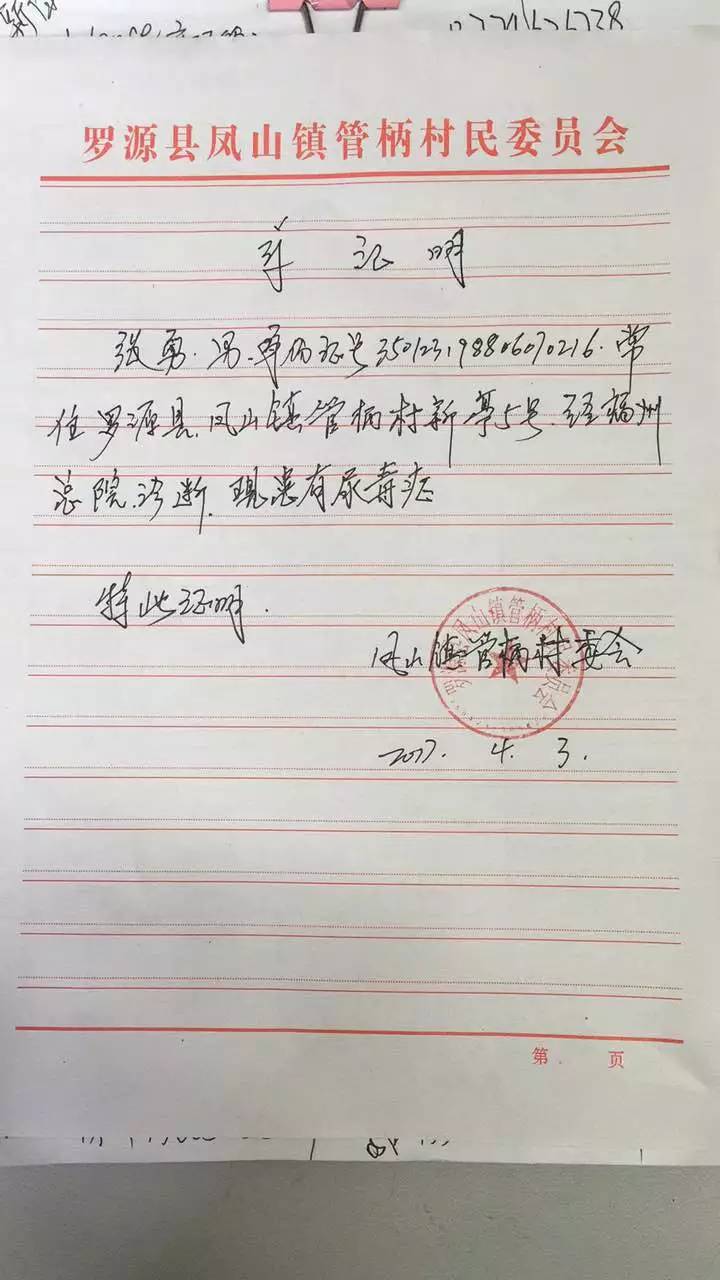 罗源县凤山镇管柄村民委员会
证明
张勇.男.身份证号350123198806070216.常
住罗源县.凤山镇管柄村新亭5号.经福州
总院诊断.现患有尿毒症
特此证明.
凤山镇管柄村委会
罗源县凤山镇管柄村民委员会
2017.4.3.
第 页